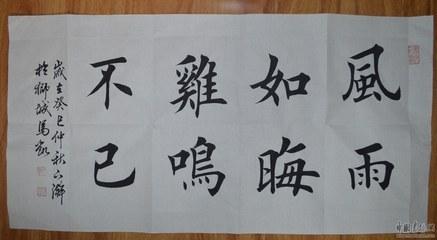 風雨
如晦
雞鳴
不已
歲在癸巳仲秋
於獅城馬凱